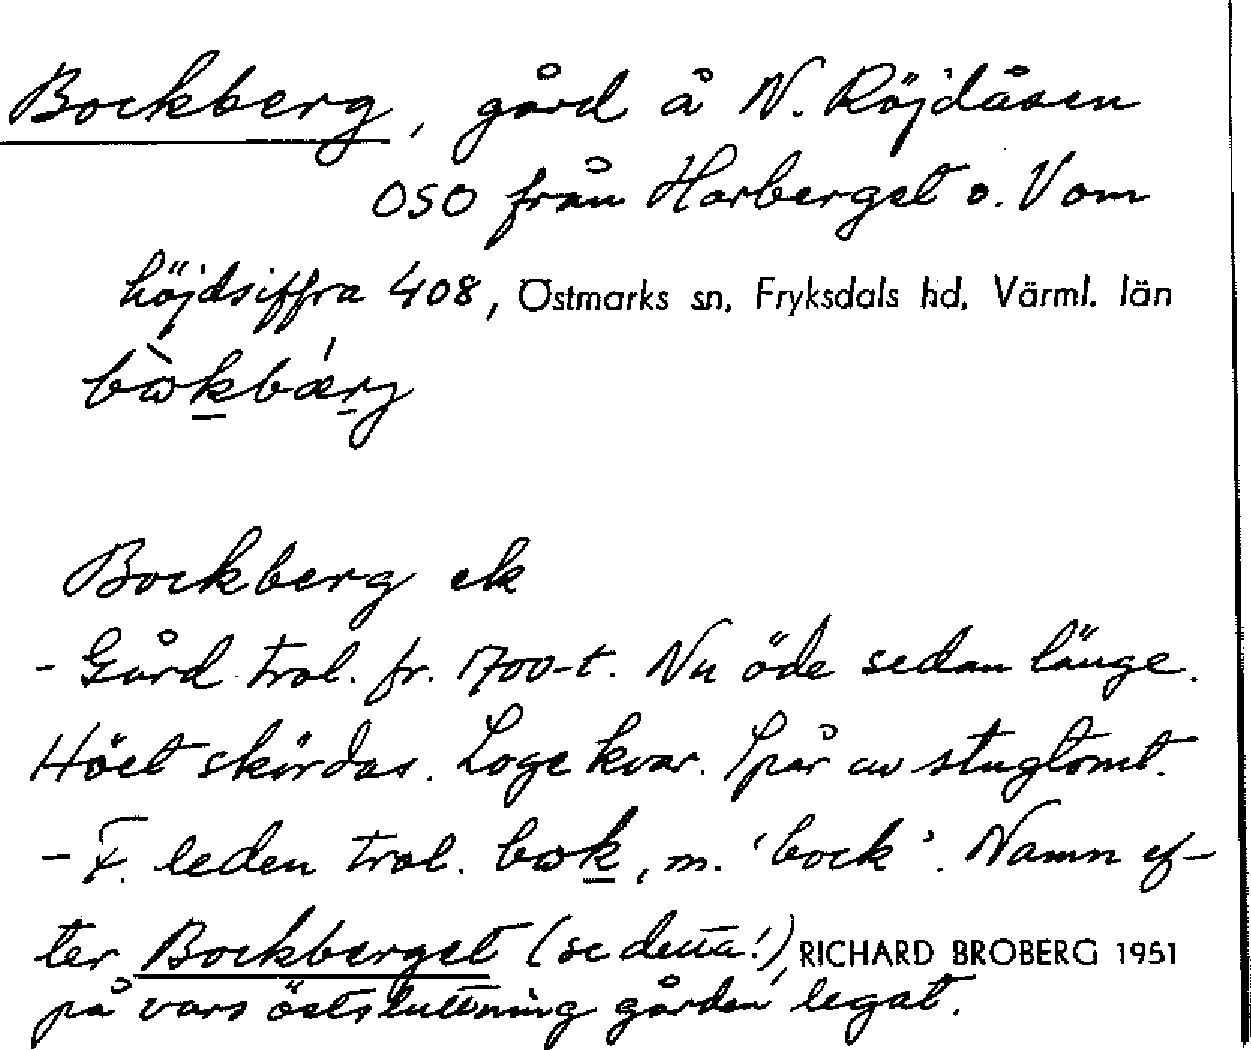 Bockberg, gård å N. Röjdåsen
OSO från Harberget o. V om
höjdsiffra 408, Östmarks sn, Fryksdals hd, Värml. län
bὼkbǽrj
Bockberg ek
- Gård trol. fr. 1700-t. Nu öde sedan länge.
Höet skördas. Loge kvar. Spår av stugtomt.
- F. leden trol. bωk, m. 'bock'. Namn ef-
ter Bockberget (se detta!), RICHARD BROBERG 1951
på vars östsluttning gården legat.